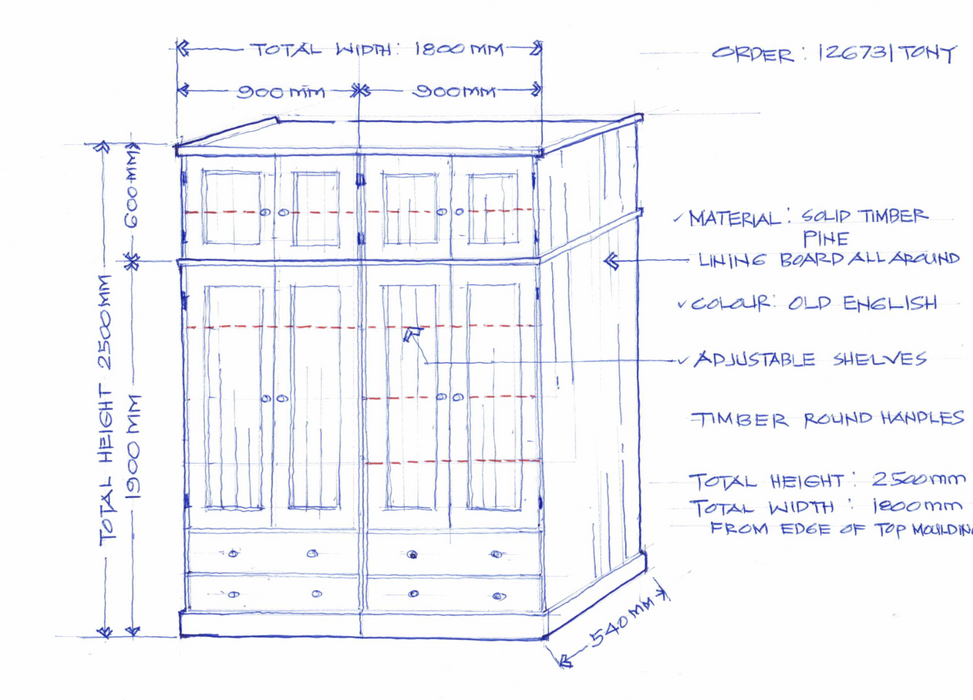 TOTAL WIDTH: 1800MM
ORDER: 126731 TONY
900MM
900MM
600MM
TOTAL HEIGHT 2500MM
1900MM
MATERIAL: SOLID TIMBER
PINE
LINING BOARD ALL AROUND
COLOUR: OLD ENGLISH
ADJUSTABLE SHELVES
TIMBER ROUND HANDLES
TOTAL HEIGHT: 2500mm
TOTAL WIDTH: 1800mm
FROM EDGE OF TOP MOULDING
540MM